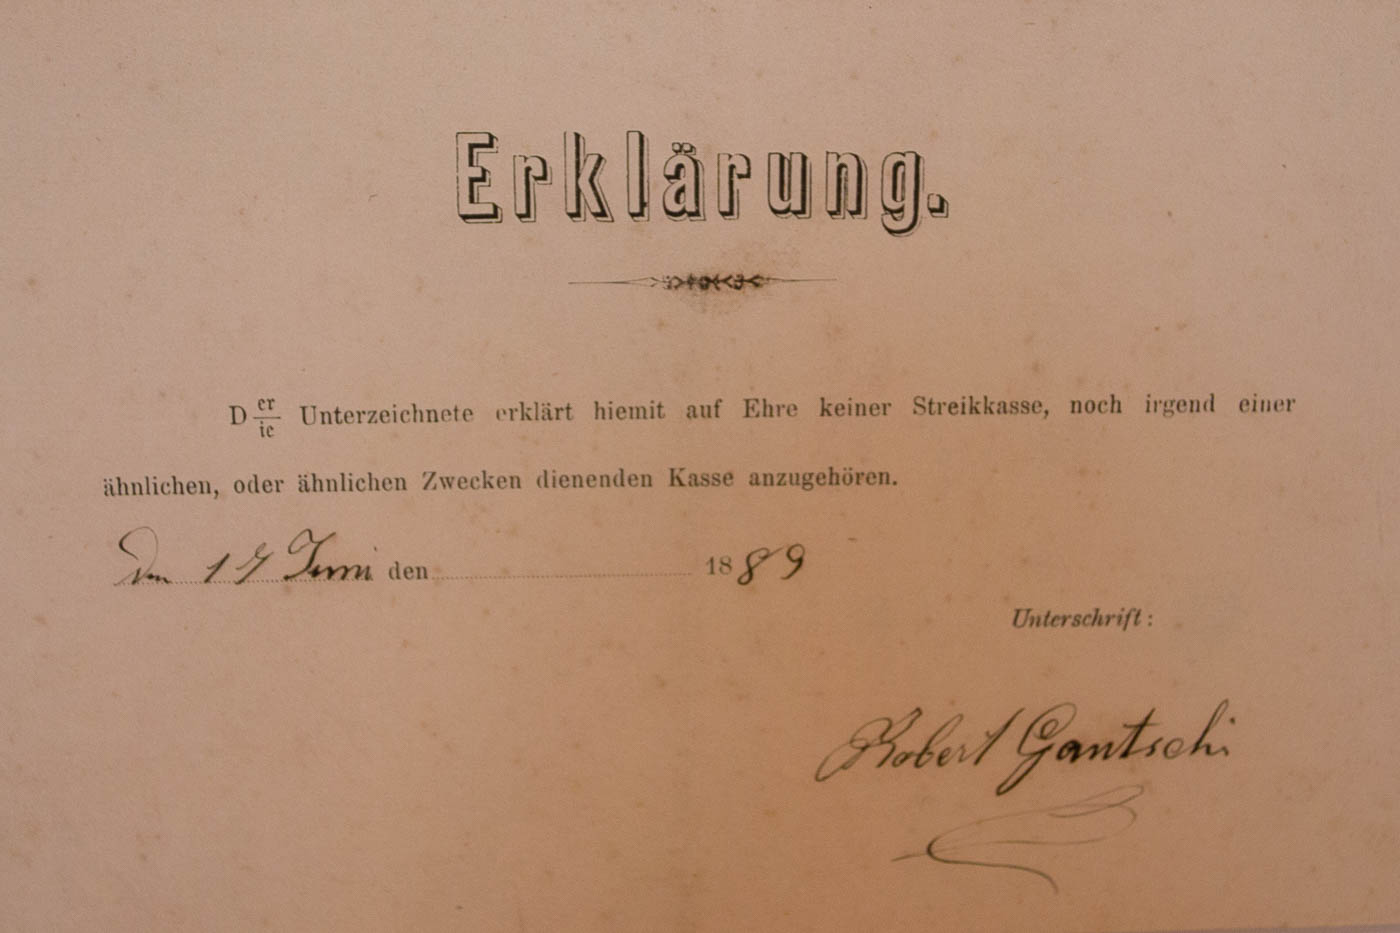 Erklärung.
D er/ie Unterzeichnete erklärt hiemit auf Ehre keiner Streikkasse, noch irgend einer
ähnlichen, oder ähnlichen Zwecken dienenden Kasse anzugehören.
Den 17 Juni den 1889
Unterschrift:
Robert Gantschi